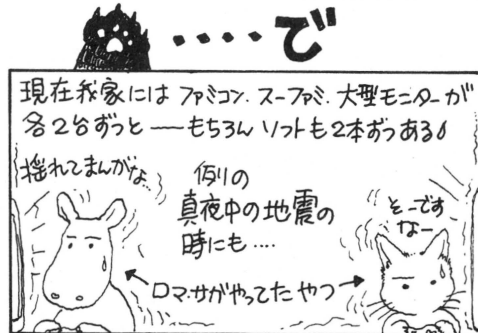 ‥‥で
現在我家には ファミコン.スーファミ.大型モニターが
各2台ずつと──もちろん ソフトも2本ずつある
揺れてまんがな…
例の
真夜中の地震の
時にも‥‥
そーです
なー
←ロマ.サがやってたやつ→